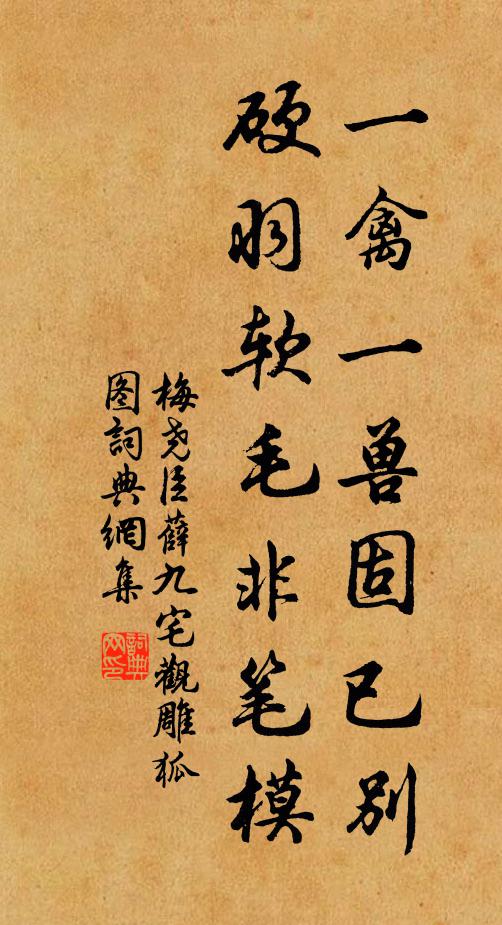 一禽一兽固已别
硬羽软毛非笔模
梅尧臣薛九宅觀雕狐
图詞典網集
詞典网印